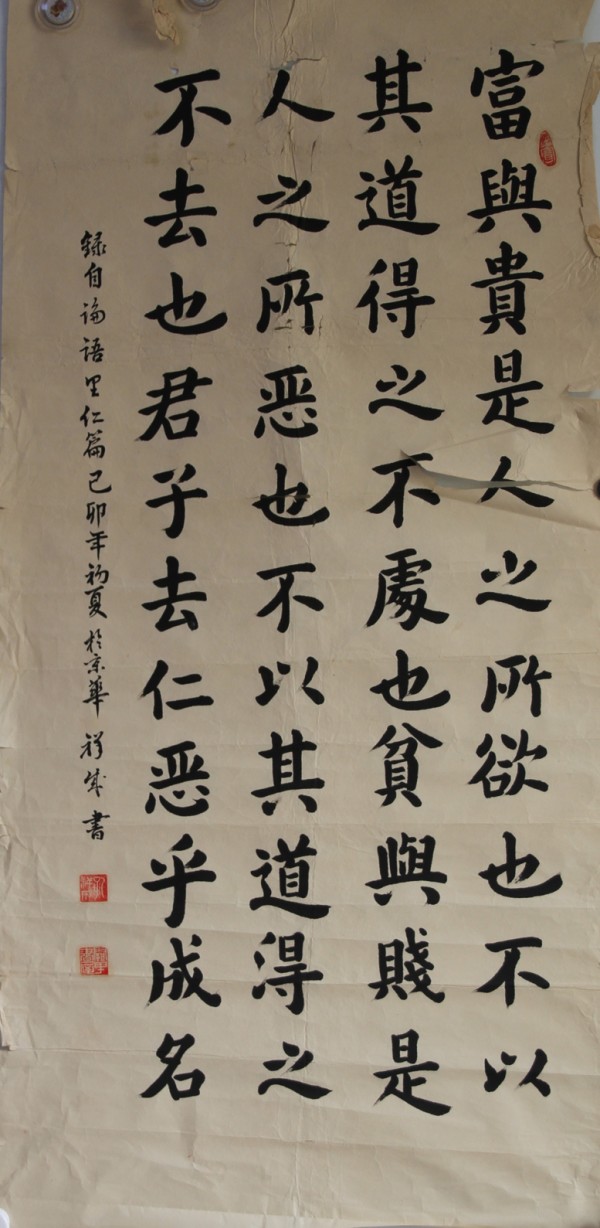 富與貴是人之所欲也不以
其道得之不處也貧與賤是
人之所恶也不以其道得之
不去也君子去仁恶乎成名
録自論語里仁篇己卯年初夏於京華 祥成書